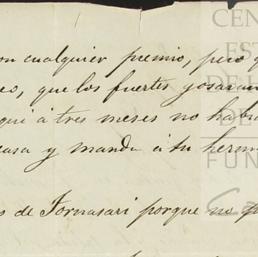 on cualquier premio, pero
eo, que los fuertes y osaran
qui á tres meses no habrá
casa y manda á tu herm
s de Tornasari porque no
CEN
ES
DE
DE
FUN